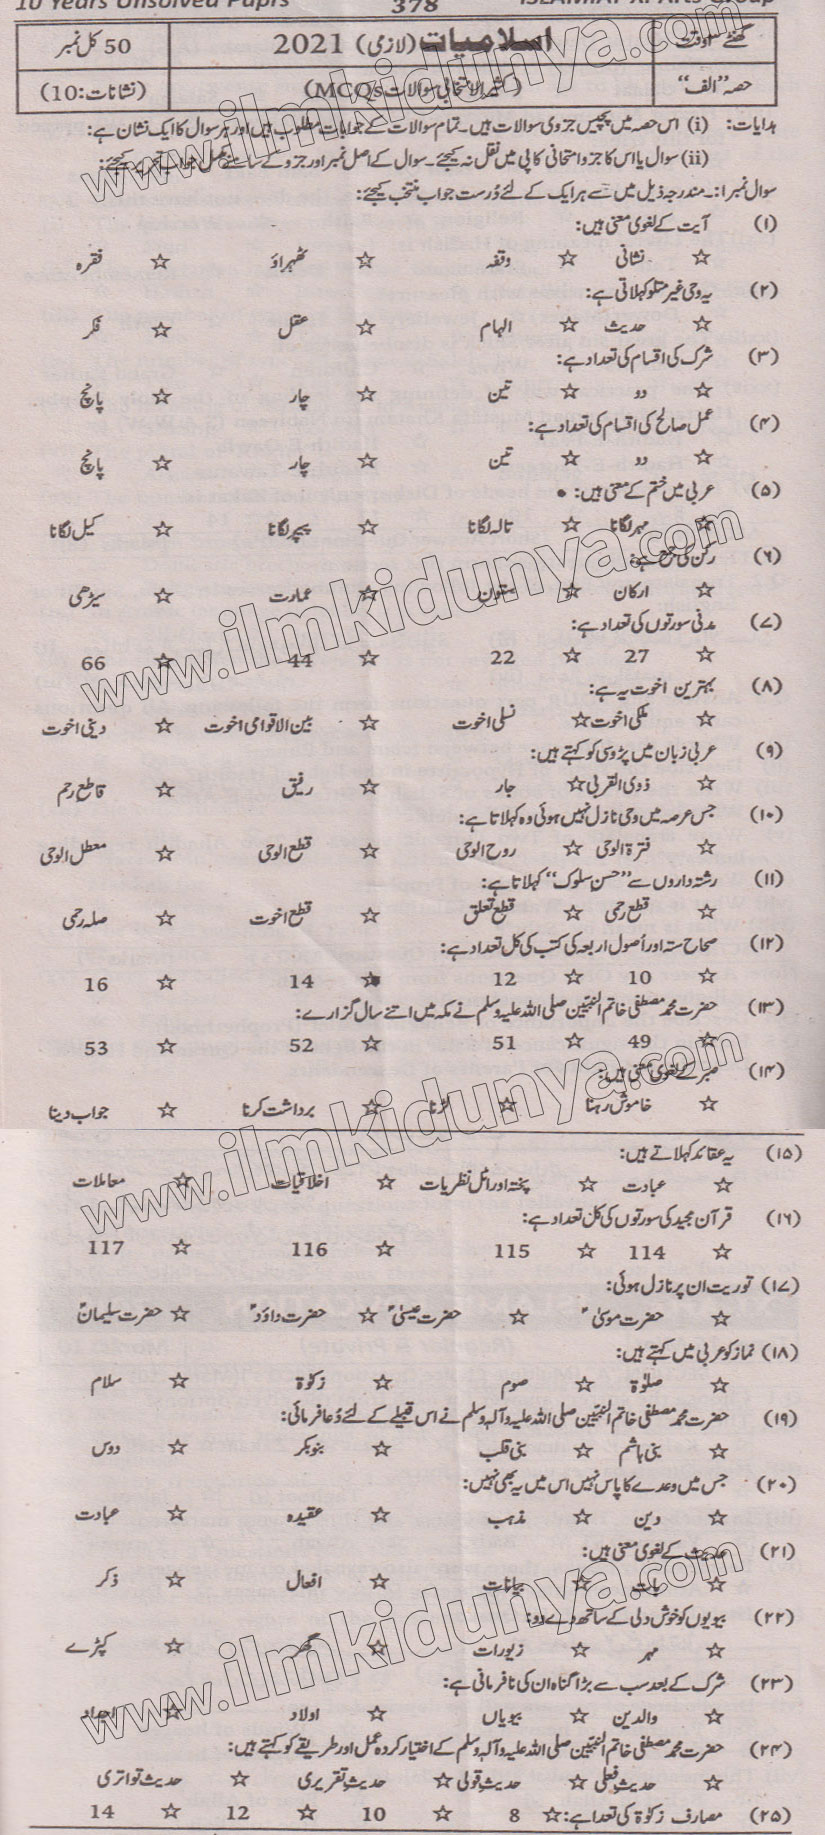 10 Years Unsolved Paprs 378
وقت ۳ گھنٹے اسلامیات (لازمی) 2021 کل نمبر 50
حصہ ”الف“ (کثیر الانتخابی سوالات MCQs) (نشانات:10)
ہدایات: (i) اس حصہ میں پچیس جزوی سوالات ہیں۔ تمام سوالات کے جوابات مطلوب ہیں اور ہر سوال کا ایک نشان ہے:
(ii) سوال یا اس کا جزو امتحانی کاپی میں نقل نہ کیجئے۔ سوال کے اصل نمبر اور جزو کے سامنے مکمل جواب تحریر کیجئے:
سوال نمبر ۱: ۔ مندرجہ ذیل میں سے ہر ایک کے لئے دُرست جواب منتخب کیجئے:
(۱) آیت کے لغوی معنی ہیں:
☆ نشانی ☆ وقفہ ☆ ٹھہراؤ ☆ فقرہ
(۲) یہ وحی غیر متلو کہلاتی ہے:
☆ حدیث ☆ الہام ☆ عقل ☆ فکر
(۳) شرک کی اقسام کی تعداد ہے:
☆ دو ☆ تین ☆ چار ☆ پانچ
(۴) عمل صالح کی اقسام کی تعداد ہے:
☆ دو ☆ تین ☆ چار ☆ پانچ
(۵) عربی میں ختم کے معنی ہیں:
☆ مہر لگانا ☆ تالہ لگانا ☆ پیچر لگانا ☆ کیل لگانا
(۶) رکن کی جمع ہے:
☆ ارکان ☆ ستون ☆ عمارت ☆ سیڑھی
(۷) مدنی سورتوں کی تعداد ہے:
☆ 27 ☆ 22 ☆ 44 ☆ 66
(۸) بہترین اخوت یہ ہے:
☆ ملکی اخوت ☆ نسلی اخوت ☆ بین الاقوامی اخوت ☆ دینی اخوت
(۹) عربی زبان میں پڑوسی کو کہتے ہیں:
☆ ذوی القربیٰ ☆ جار ☆ رفیق ☆ قاطع رحم
(۱۰) جس عرصہ میں وحی نازل نہیں ہوئی وہ کہلاتا ہے:
☆ فترۃ الوحی ☆ روح الوحی ☆ قطع الوحی ☆ معطل الوحی
(۱۱) رشتہ داروں سے ”حسنِ سلوک“ کہلاتا ہے:
☆ قطع رحمی ☆ قطع تعلق ☆ قطع اخوت ☆ صلہ رحمی
(۱۲) صحاح ستہ اور اُصول اربعہ کی کتب کی کل تعداد ہے:
☆ 10 ☆ 12 ☆ 14 ☆ 16
(۱۳) حضرت محمد مصطفیٰ خاتم النبیّین صلی اللہ علیہ وسلم نے مکہ میں اتنے سال گزارے:
☆ 49 ☆ 51 ☆ 52 ☆ 53
(۱۴) صبر کے لغوی معنی ہیں:
☆ خاموش رہنا ☆ لڑنا ☆ برداشت کرنا ☆ جواب دینا
(۱۵) یہ عقائد کہلاتے ہیں:
☆ عبادت ☆ پختہ اور اٹل نظریات ☆ اخلاقیات ☆ معاملات
(۱۶) قرآن مجید کی سورتوں کی کل تعداد ہے:
☆ 114 ☆ 115 ☆ 116 ☆ 117
(۱۷) توریت ان پر نازل ہوئی:
☆ حضرت موسیٰؑ ☆ حضرت عیسیٰؑ ☆ حضرت داؤدؑ ☆ حضرت سلیمانؑ
(۱۸) نماز کو عربی میں کہتے ہیں:
☆ صلوٰۃ ☆ صوم ☆ زکوٰۃ ☆ سلام
(۱۹) حضرت محمد مصطفیٰ خاتم النبیّین صلی اللہ علیہ وآلہ وسلم نے اس قبیلے کے لئے دُعا فرمائی:
☆ بنی ہاشم ☆ بنی قلب ☆ بنو بکر ☆ دوس
(۲۰) جس میں وعدے کا پاس نہیں اس میں یہ بھی نہیں:
☆ دین ☆ مذہب ☆ عقیدہ ☆ عبادت
(۲۱) حدیث کے لغوی معنی ہیں:
☆ بات ☆ بیانات ☆ افعال ☆ ذکر
(۲۲) بیویوں کو خوش دلی کے ساتھ دے دو:
☆ مہر ☆ زیورات ☆ گھر ☆ کپڑے
(۲۳) شرک کے بعد سب سے بڑا گناہ ان کی نافرمانی ہے:
☆ والدین ☆ بیویاں ☆ اولاد ☆ اجداد
(۲۴) حضرت محمد مصطفیٰ خاتم النبیّین صلی اللہ علیہ وآلہ وسلم کے اختیار کردہ عمل اور طریقے کو کہتے ہیں:
☆ حدیث فعلی ☆ حدیث قولی ☆ حدیث تقریری ☆ حدیث تواتری
(۲۵) مصارف زکوٰۃ کی تعدا ہے: ☆ 8 ☆ 10 ☆ 12 ☆ 14
www.ilmkidunya.com
www.ilmkidunya.com
www.ilmkidunya.com
www.ilmkidunya.com